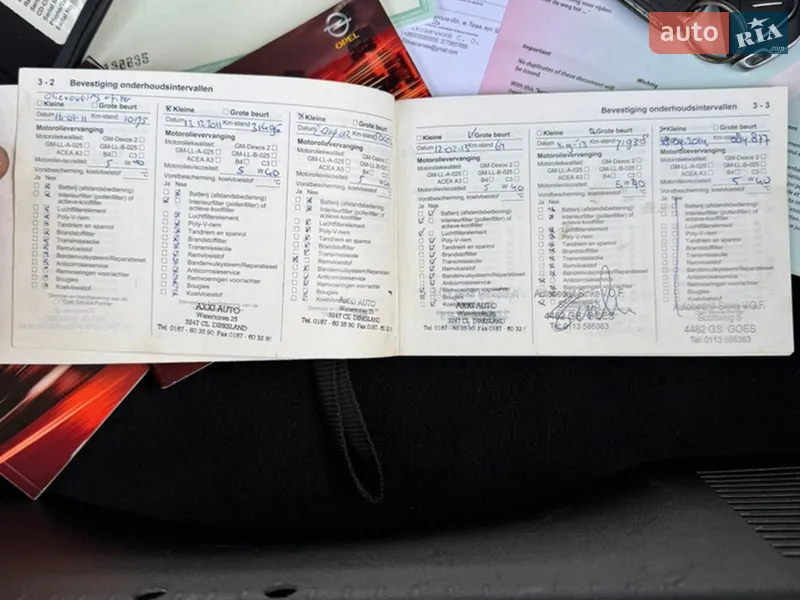 auto RIA.com
OPEL
Important
No duplicates of these document will
be issued.
Wichtig
3 - 2 Bevestiging onderhoudsintervallen
Kleine Grote beurt
Datum 16-01-11 Km-stand
Motorolievervanging
Motoroliekwaliteit: GM-Dexos 2
GM-LL-A-025 GM-LL-B-025
ACEA A3 B4 C3
Motorolieviscositeit: 5 W 40
Vorstbescherming, koelvloeistof °C
Ja Nee
Batterij (afstandsbediening)
Interieurfilter (pollenfilter) of
actieve-koolfilter
Luchtfilterelement
Poly-V-riem
Tandriem en spanrol
Brandstoffilter
Transmissieolie
Remvloeistof
Bandenvulkysteem/Reparatieset
Anticorrosieservice
Remvoeringen voor/achter
Bougies
Koelvloeistof
Kleine Grote beurt
Datum 13.12.2011 Km-stand 31496
Motorolievervanging
Motoroliekwaliteit: GM-Dexos 2
GM-LL-A-025 GM-LL-B-025
ACEA A3 B4 C3
Motorolieviscositeit: 5 W 40
Vorstbescherming, koelvloeistof °C
Ja Nee
Batterij (afstandsbediening)
Interieurfilter (pollenfilter) of
actieve-koolfilter
Luchtfilterelement
Poly-V-riem
Tandriem en spanrol
Brandstoffilter
Transmissieolie
Remvloeistof
Bandenvulkysteem/Reparatieset
Anticorrosieservice
Remvoeringen voor/achter
Bougies
Koelvloeistof
AXXI AUTO
Watertoren 25
3247 CL DIRKSLAND
Tel. 0187 - 60 35 90 Fax 0187 - 60 32 8
Kleine Grote beurt
Datum Km-stand
Motorolievervanging
Motoroliekwaliteit: GM-Dexos 2
GM-LL-A-025 GM-LL-B-025
ACEA A3 B4 C3
Motorolieviscositeit: 5 W 40
Vorstbescherming, koelvloeistof
Ja Nee
Batterij (afstandsbediening)
Interieurfilter (pollenfilter) of
actieve-koolfilter
Luchtfilterelement
Poly-V-riem
Tandriem en spanrol
Brandstoffilter
Transmissieolie
Remvloeistof
Bandenvulkysteem/Reparatieset
Anticorrosieservice
Remvoeringen voor/achter
Bougies
Koelvloeistof
AXXI AUTO
Watertoren 25
3247 CL DIRKSLAND
Tel. 0187 - 60 35 90 Fax 0187 - 60 32
Bevestiging onderhoudsintervallen 3 - 3
Kleine Grote beurt
Datum 12-02-13 Km-stand
Motorolievervanging
Motoroliekwaliteit: GM-Dexos 2
GM-LL-A-025 GM-LL-B-025
ACEA A3 B4 C3
Motorolieviscositeit: 5 W 40
Vorstbescherming, koelvloeistof °C
Ja Nee
Batterij (afstandsbediening)
Interieurfilter (pollenfilter) of
actieve-koolfilter
Luchtfilterelement
Poly-V-riem
Tandriem en spanrol
Brandstoffilter
Transmissieolie
Remvloeistof
Bandenvulkysteem/Reparatieset
Anticorrosieservice
Remvoeringen voor/achter
Bougies
Koelvloeistof
AXXI AUTO
Watertoren 25
3247 CL DIRKSLAND
Tel. 0187 - 60 35 90 Fax 0187 - 60 32
Kleine Grote beurt
Datum Km-stand
Motorolievervanging
Motoroliekwaliteit: GM-Dexos 2
GM-LL-A-025 GM-LL-B-025
ACEA A3 B4 C3
Motorolieviscositeit: 5 W 40
Vorstbescherming, koelvloeistof °C
Ja Nee
Batterij (afstandsbediening)
Interieurfilter (pollenfilter) of
actieve-koolfilter
Luchtfilterelement
Poly-V-riem
Tandriem en spanrol
Brandstoffilter
Transmissieolie
Remvloeistof
Bandenvulkysteem/Reparatieset
Anticorrosieservice
Remvoeringen voor/achter
Bougies
Koelvloeistof
4462 GS GOES
Tel: 0113 586363
Kleine Grote beurt
Datum Km-stand
Motorolievervanging
Motoroliekwaliteit: GM-Dexos 2
GM-LL-A-025 GM-LL-B-025
ACEA A3 B4 C3
Motorolieviscositeit: 5 W 40
Vorstbescherming, koelvloeistof °C
Ja Nee
Batterij (afstandsbediening)
Interieurfilter (pollenfilter) of
actieve-koolfilter
Luchtfilterelement
Poly-V-riem
Tandriem en spanrol
Brandstoffilter
Transmissieolie
Remvloeistof
Bandenvulkysteem/Reparatieset
Anticorrosieservice
Remvoeringen voor/achter
Bougies
Koelvloeistof
4462 GS GOES
Tel: 0113 586363